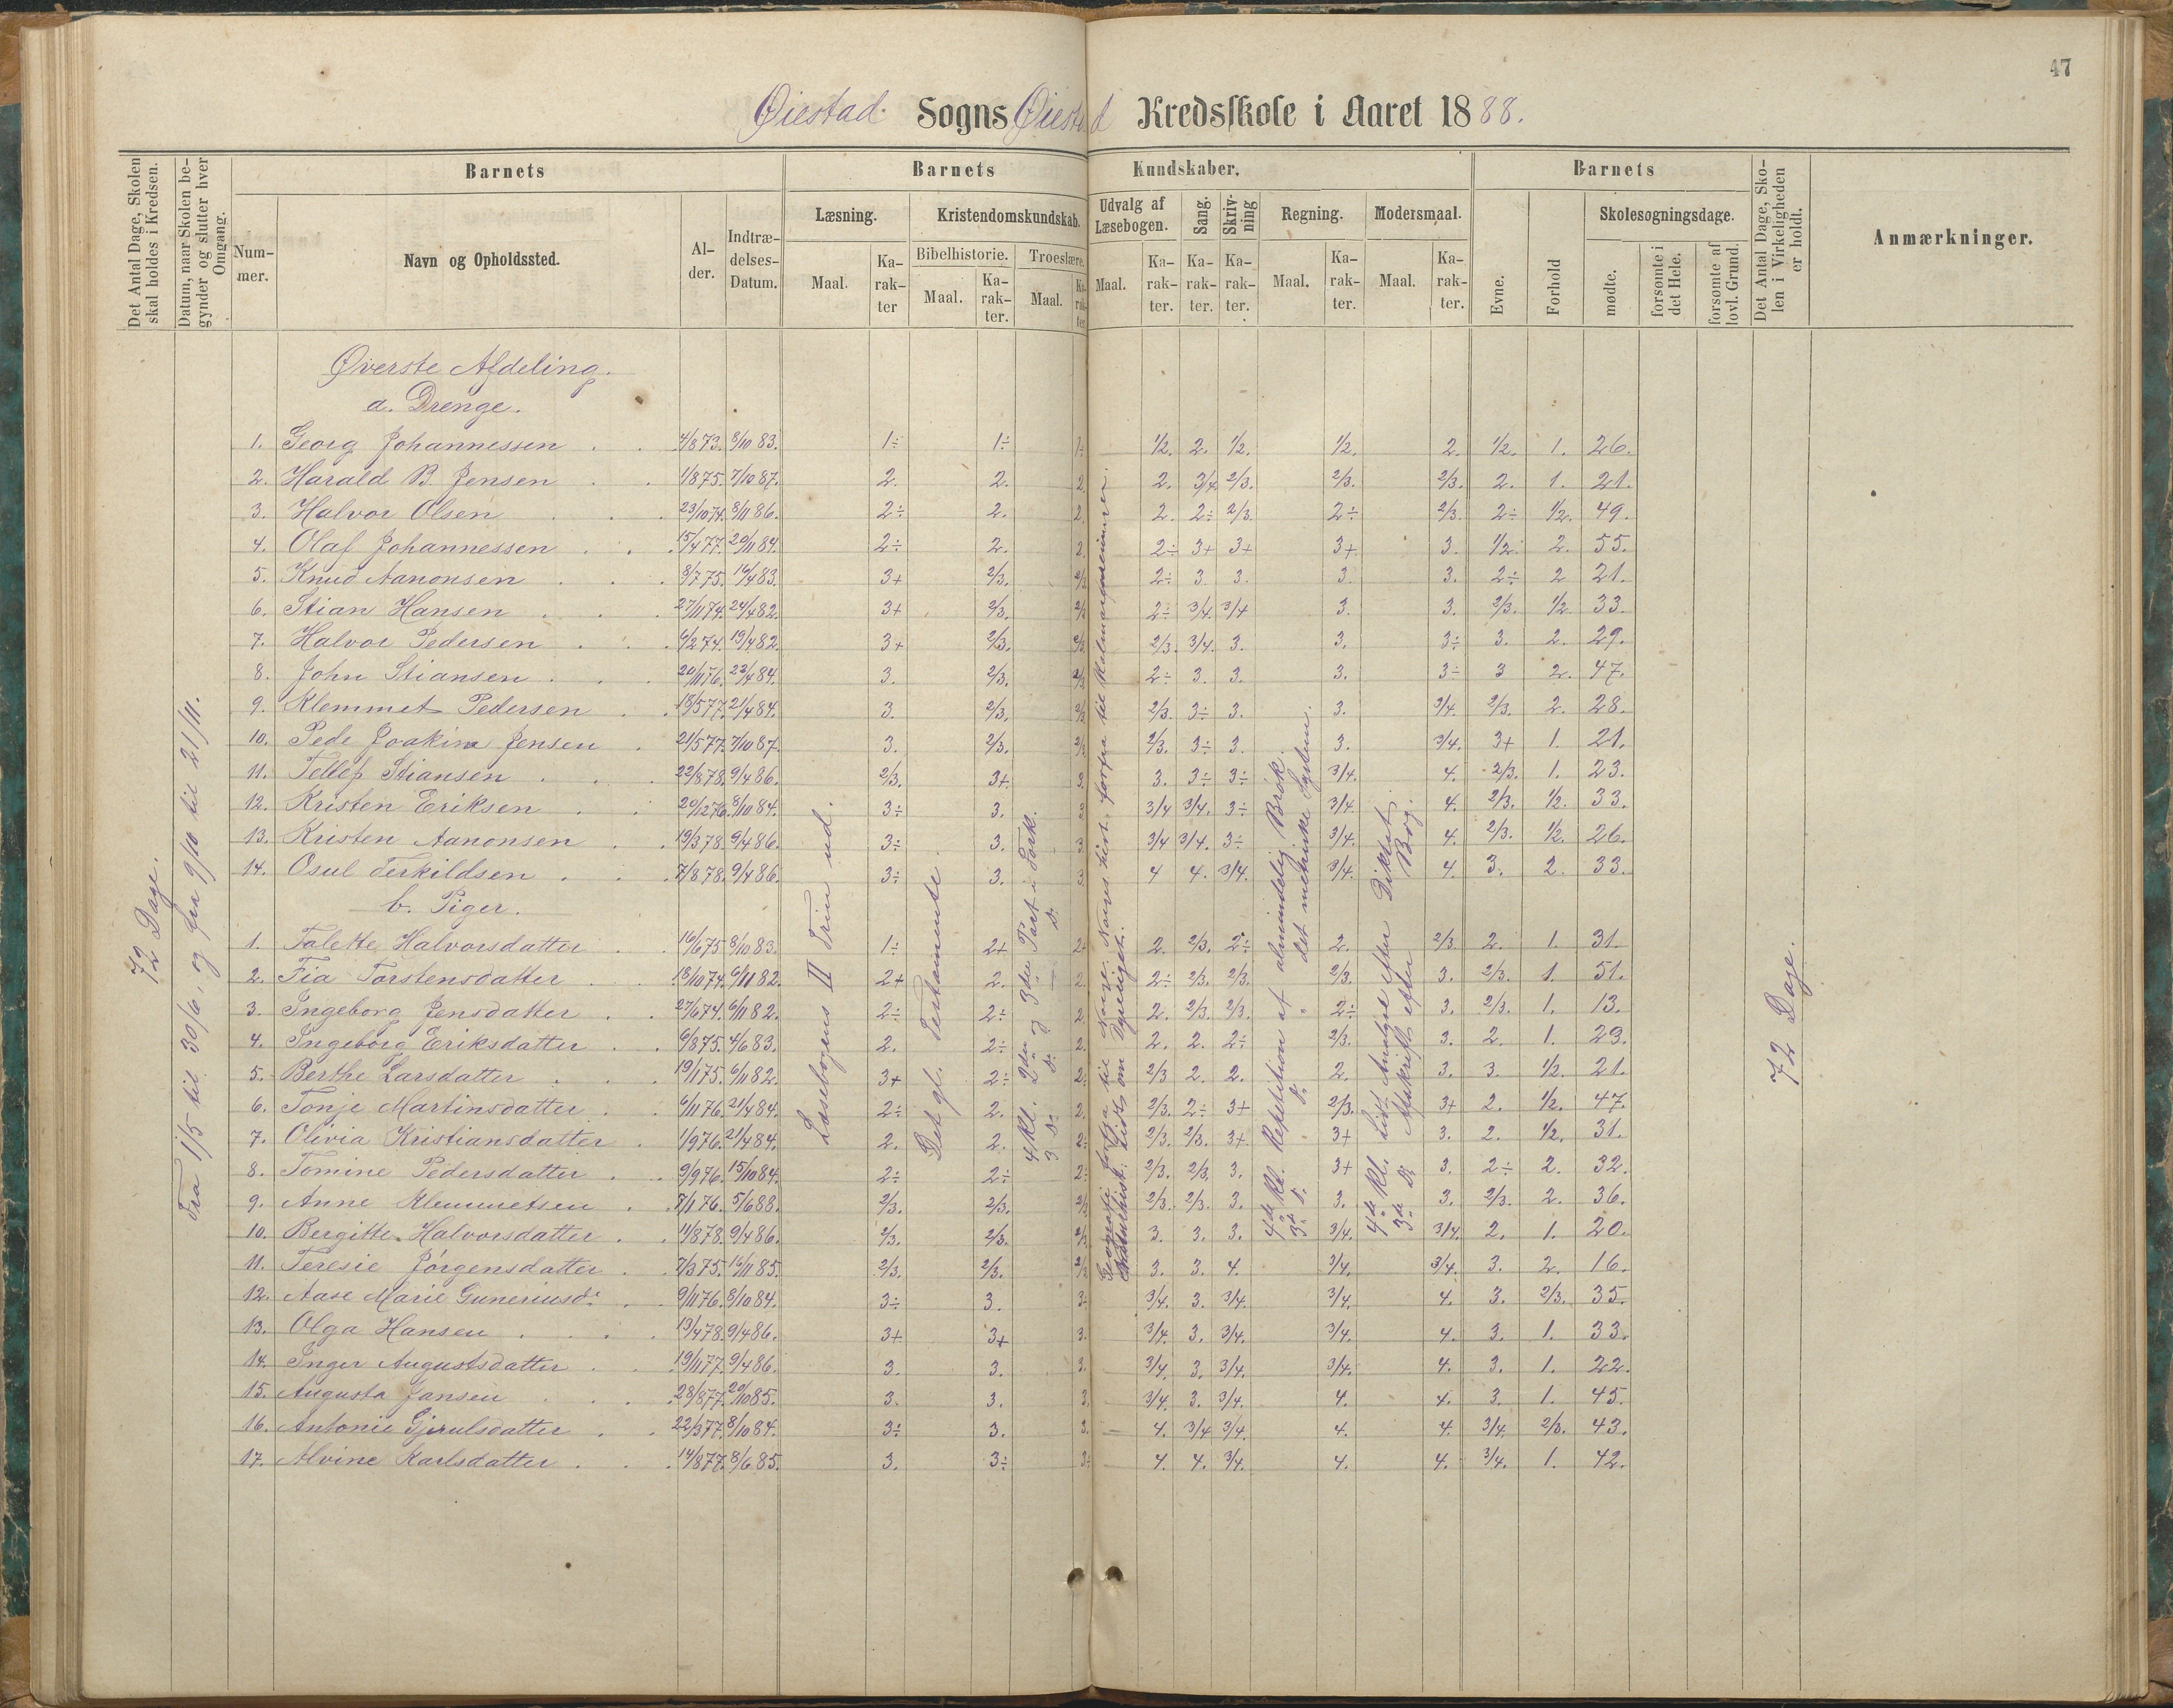 47
Øiestad Sogns Øiestad Kredsskole i Aaret 1888.
Det Antal Dage, Skolen skal holdes i Kredsen.
Datum, naar Skolen begynder og slutter hver Omgang.
Barnets
Nummer.
Navn og Opholdssted.
Alder.
Indtrædelses-Datum.
Barnets Kundskaber.
Læsning.
Maal.
Karakter
Kristendomskundskab.
Bibelhistorie.
Maal.
Karakter.
Troeslære.
Maal.
Karakter
Udvalg af Læsebogen.
Maal.
Karakter.
Sang.
Karakter.
Skrivning
Karakter.
Regning.
Maal.
Karakter.
Modersmaal.
Maal.
Karakter.
Barnets
Evne.
Forhold
Skolesøgningsdage.
mødte.
forsømte i det Hele.
forsømte af lovl. Grund.
Det Antal Dage, Skolen i Virkeligheden er holdt.
Anmærkninger.
72 Dage.
Fra 1/5 til 30/6, og fra 9/10 til 21/11.
Øverste Afdeling.
a. Drenge.
1. Georg Johannessen 4/8 73. 8/10 83. 1÷ 1÷ 1÷ 1/2. 2. 1/2. 1/2. 2. 1/2. 1. 26.
2. Harald B. Jensen 1/8 75. 7/10 87. 2. 2. 2. 2. 3/4. 2/3. 2/3. 2/3. 2. 1. 21.
3. Halvor Olsen 23/10 74. 8/11 86. 2÷ 2. 2. 2. 2÷ 2/3. 2÷ 2/3. 2÷ 1/2. 49.
4. Olaf Johannessen 15/4 77. 20/11 84. 2÷ 2. 2. 2÷ 3+ 3+ 3+ 3. 1/2. 2. 55.
5. Knud Aanonsen 8/7 75. 16/4 83. 3+ 2/3. 2/3 2÷ 3. 3. 3. 3. 2÷ 2 21.
6. Stian Hansen 27/11 74. 24/4 82. 3+ 2/3. 2/3 2÷ 3/4. 3/4 3. 3. 2/3. 1/2. 33.
7. Halvor Pedersen 6/2 74. 19/4 82. 3+ 2/3. 2/3. 2/3. 3/4. 3. 3. 3÷ 3. 2. 29.
8. John Stiansen 20/11 76. 23/4 84. 3. 2/3. 2/3 2÷ 3. 3. 3. 3÷ 3 2. 47.
9. Klemmet Pedersen 18/5 77. 21/4 84. 3. 2/3. 2/3 2/3. 3÷ 3. 3. 3/4. 2/3. 2. 28.
10. Pede Joakim Jensen 21/5 77. 7/10 87. 3. 2/3. 2/3 2/3. 3÷ 3. 3. 3/4. 3+ 1. 21.
11. Tellef Stiansen 22/8 78. 9/4 86. 2/3. 3+ 3. 3. 3÷ 3÷ 3/4. 4. 2/3. 1. 23.
12. Kristen Eriksen 20/12 76. 8/10 84. 3÷ 3. 3 3/4 3/4. 3÷ 3/4. 4. 2/3. 1/2. 33.
13. Kristen Aanonsen 19/3 78. 9/4 86. 3÷ 3. 3. 3/4 3/4. 3÷ 3/4. 4. 2/3. 1/2. 26.
14. Osul Terkildsen 7/8 78. 9/4 86. 3÷ 3. 3. 4 4. 3/4. 3/4. 4. 3. 2. 33.
b. Piger.
1. Talette Halvorsdatter 16/6 75 8/10 83. 1÷ 2+ 2+ 2. 2/3. 2÷ 2. 2/3. 2. 1. 31.
2. Fia Torstensdatter 18/10 74. 6/11 82. 2+ 2. 2. 2÷ 2/3. 2/3. 2/3. 3. 2/3. 1. 51.
3. Ingeborg Jensdatter 27/6 74. 6/11 82. 2÷ 2÷ 2. 2. 2/3. 2/3. 2÷ 3. 2/3. 1. 13.
4. Ingeborg Eriksdatter 6/8 75. 4/6 83. 2. 2÷ 2. 2. 2. 2÷ 2/3. 3. 2. 1. 29.
5. Berthe Larsdatter 19/1 75. 6/11 82. 3+ 2÷ 2÷ 2/3 2. 2. 2. 3. 3. 1/2. 21.
6. Tonje Martinsdatter 6/11 76. 21/4 84. 2÷ 2. 2. 2/3. 2÷ 3+ 2/3. 3+ 2. 1/2. 47.
7. Olivia Kristiansdatter 1/9 76. 21/4 84. 2. 2. 2÷ 2/3. 2/3. 3+. 3+ 3. 2. 1/2. 31.
8. Tomine Pedersdatter 9/9 76. 15/10 84. 2÷ 2÷ 2÷ 2/3. 2/3. 3. 3+ 3. 2÷ 2. 32.
9. Anne Klemmetsen 7/1 76. 5/6 88. 2/3. 2/3. 2/3 2/3. 2/3. 3. 3. 3. 2/3. 2. 36.
10. Bergitte Halvorsdatter 11/8 78. 9/4 86. 2/3. 2/3. 2/3 3. 3. 3. 3/4. 3/4. 2. 1. 20.
11. Teresie Jörgensdatter 7/3 75. 16/11 85. 2/3. 2/3. 2/3 3. 3. 4. 3/4. 3/4. 3. 2. 16.
12. Aase Marie Guneriusd. 9/11 76. 8/10 84. 3÷ 3. 3÷ 3/4. 3. 3/4. 3/4. 4. 3. 2/3. 35.
13. Olga Hansen 13/4 78. 9/4 86. 3+ 3+ 3. 3/4. 3. 3/4. 3/4. 4. 3. 1. 33.
14. Inger Augustsdatter 19/11 77. 9/4 86. 3. 3. 3. 3/4. 3. 3/4. 3/4. 4. 3. 1. 22.
15. Augusta Jansen 28/8 77. 20/10 85. 3. 3. 3. 3/4. 3. 3/4. 4. 4. 3. 1. 45.
16. Antonie Gjerulsdatter 22/3 77. 8/10 84. 3÷ 3. 3. 4. 3/4 3/4. 4. 4. 3/4. 2/3. 43.
17. Alvine Karlsdatter 14/8 77. 8/6 85. 3. 3÷ 3÷ 4. 4. 3/4. 4. 4. 3/4. 1. 42.
Læsebogens II Trin ud.
Det gl. Testamente.
4 Kl. 2den og 3die Part i Fork.
3 Do Do Do
Geografi fra til Norge. Norges hist. forfra til Kalmarguniunen.
Naturhist. Lidt om Dyreriget.
4de Kl. Repetition af almindelig Brøk.
3de Do Do det metriske System.
4de Kl. Lidt Analyse efter Diktat.
3de Do Afskrift efter Bog.
72 Dage.